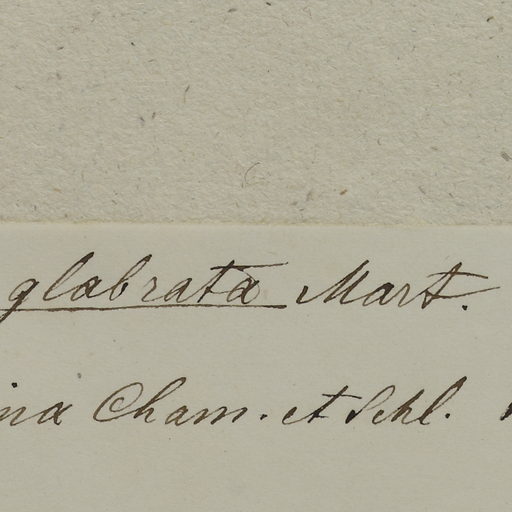 glabrata Mart.
ina Cham. et Schl.